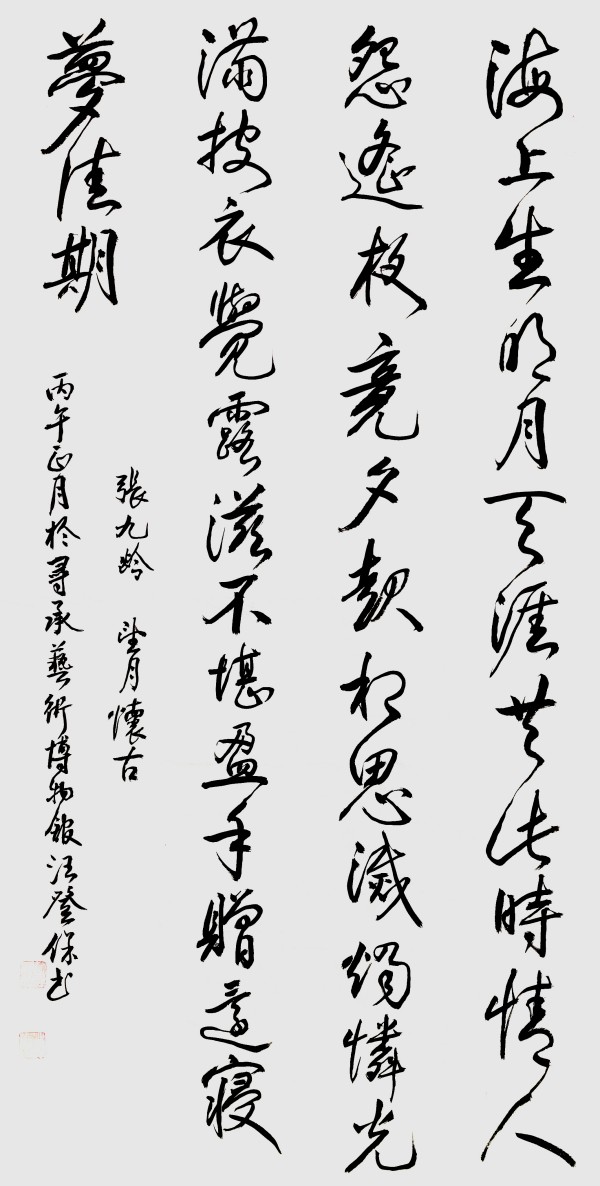 海上生明月天涯共此時情人
怨遙夜竟夕起相思滅燭憐光
滿披衣覺露滋不堪盈手贈還寢
夢佳期
張九齡 望月懷古
丙午正月於尋承藝術博物館汪登保书